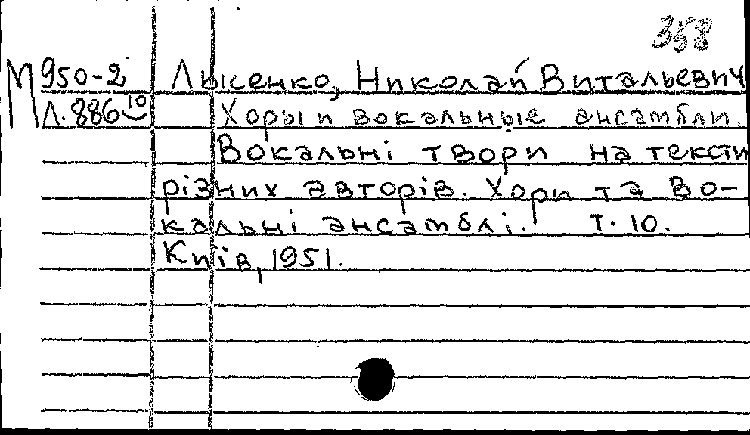 358
М 950-2 Лысенко, Николай Витальевич
Л.886 10 Хоры и вокальные ансамбли.
Вокальні твори на тексти
різних авторів. Хори та во-
кальні ансамблі. Т. 10.
Київ, 1951.